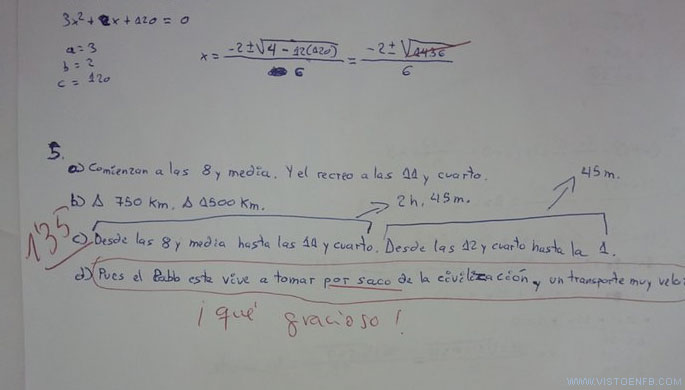 3x² + 2x + 120 = 0
a = 3
b = 2
c = 120
x = -2 ± √4 - 12(120) / 6 = -2 ± √1436 / 6
5.
a) Comienzan a las 8 y media. Y el recreo a las 11 y cuarto.
45 m.
b) A 750 Km. A 1500 Km.
2h, 45m.
1'35
c) Desde las 8 y media hasta las 11 y cuarto. Desde las 12 y cuarto hasta la 1.
d) Pues el Pablo este vive a tomar por saco de la civilización y un transporte muy velo
¡qué gracioso!
WWW.VISTOENFB.COM